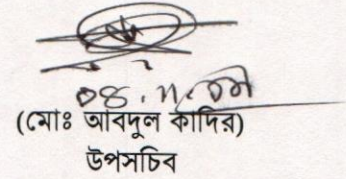 ০৪.১১.০৯
(মোঃ আবদুল কাদির)
উপসচিব